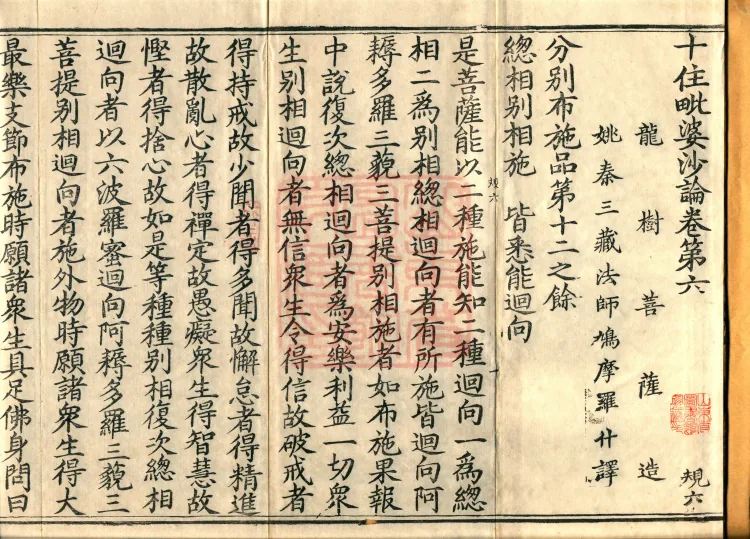 十住毗婆沙論卷第六
規六
龍樹菩薩造
姚秦三藏法師鳩摩羅什譯
分別布施品第十二之餘
總相別相施 皆悉能迴向
規六
是菩薩能以二種施能知二種迴向一爲總
相二爲別相總相迴向者有所施皆迴向阿
耨多羅三藐三菩提別相施者如布施果報
中說復次總相迴向者爲安樂利益一切衆
生別相迴向者無信衆生令得信故破戒者
得持戒故少聞者得多聞故懈怠者得精進
故散亂心者得禪定故愚癡衆生得智慧故
慳者得捨心故如是等種種別相復次總相
迴向者以六波羅蜜迴向阿耨多羅三藐三
菩提別相迴向者施外物時願諸衆生得大
最樂支節布施時願諸衆生具足佛身問曰